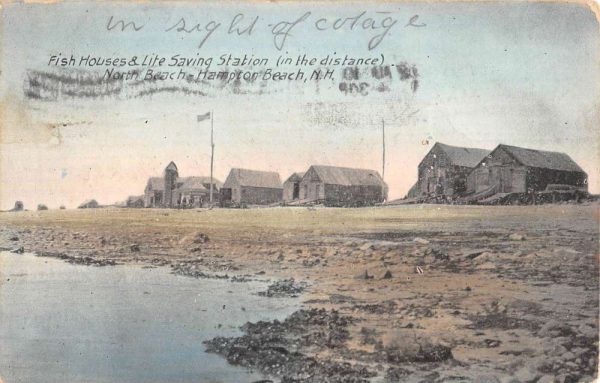 in sight of cotage
Fish Houses & Life Saving Station (in the distance)
North Beach - Hampton Beach, N.H.